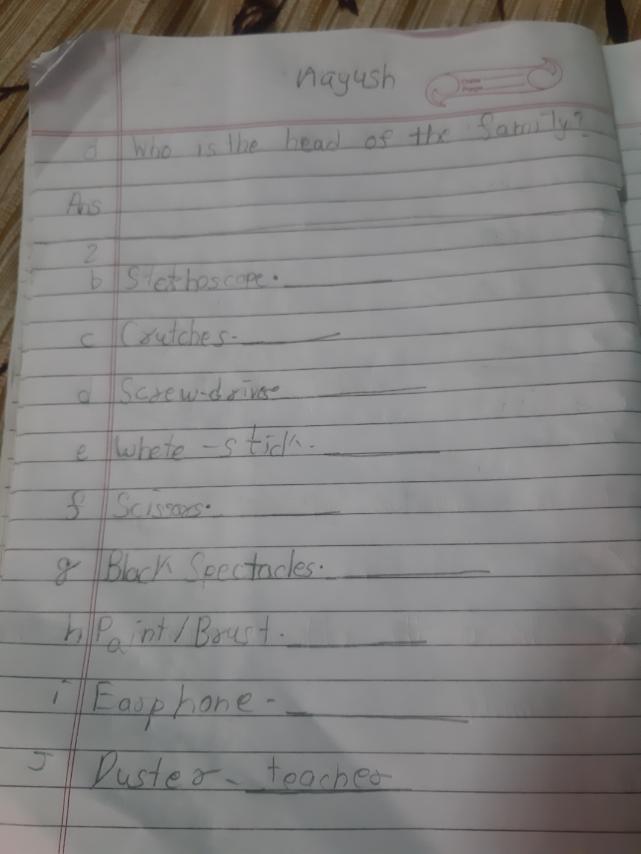 Nayush
d Who is the head of the family?
Ans
2
b Stethoscope.
c Crutches-
d Screw-driver
e Whete - stick.
f Scissors.
g Black Spectacles.
h Paint / Brust.
i Earphone -
J Duster - teacher